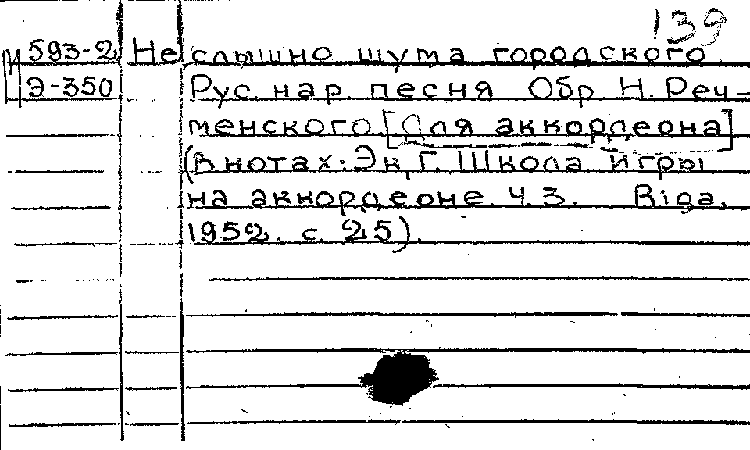 139
М 593-2 Не слышно шума городского
Э-350 Рус. нар. песня Обр. Н. Реч-
менского. [Для аккордеона]
(В нотах: Эк, Г. Школа игры
на аккордеоне. Ч. 3. Riga.
1952. с. 25).